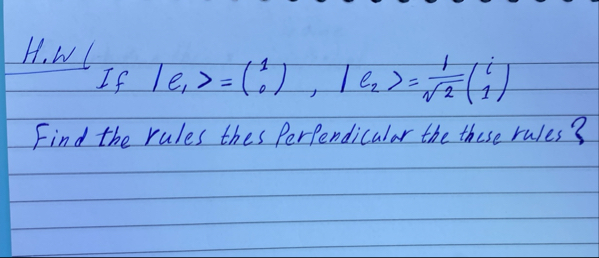 H.W(
If |e₁> = (1 0) , |e₂> = 1/√2 (i 1)
Find the rules thes Perpendicular the these rules?